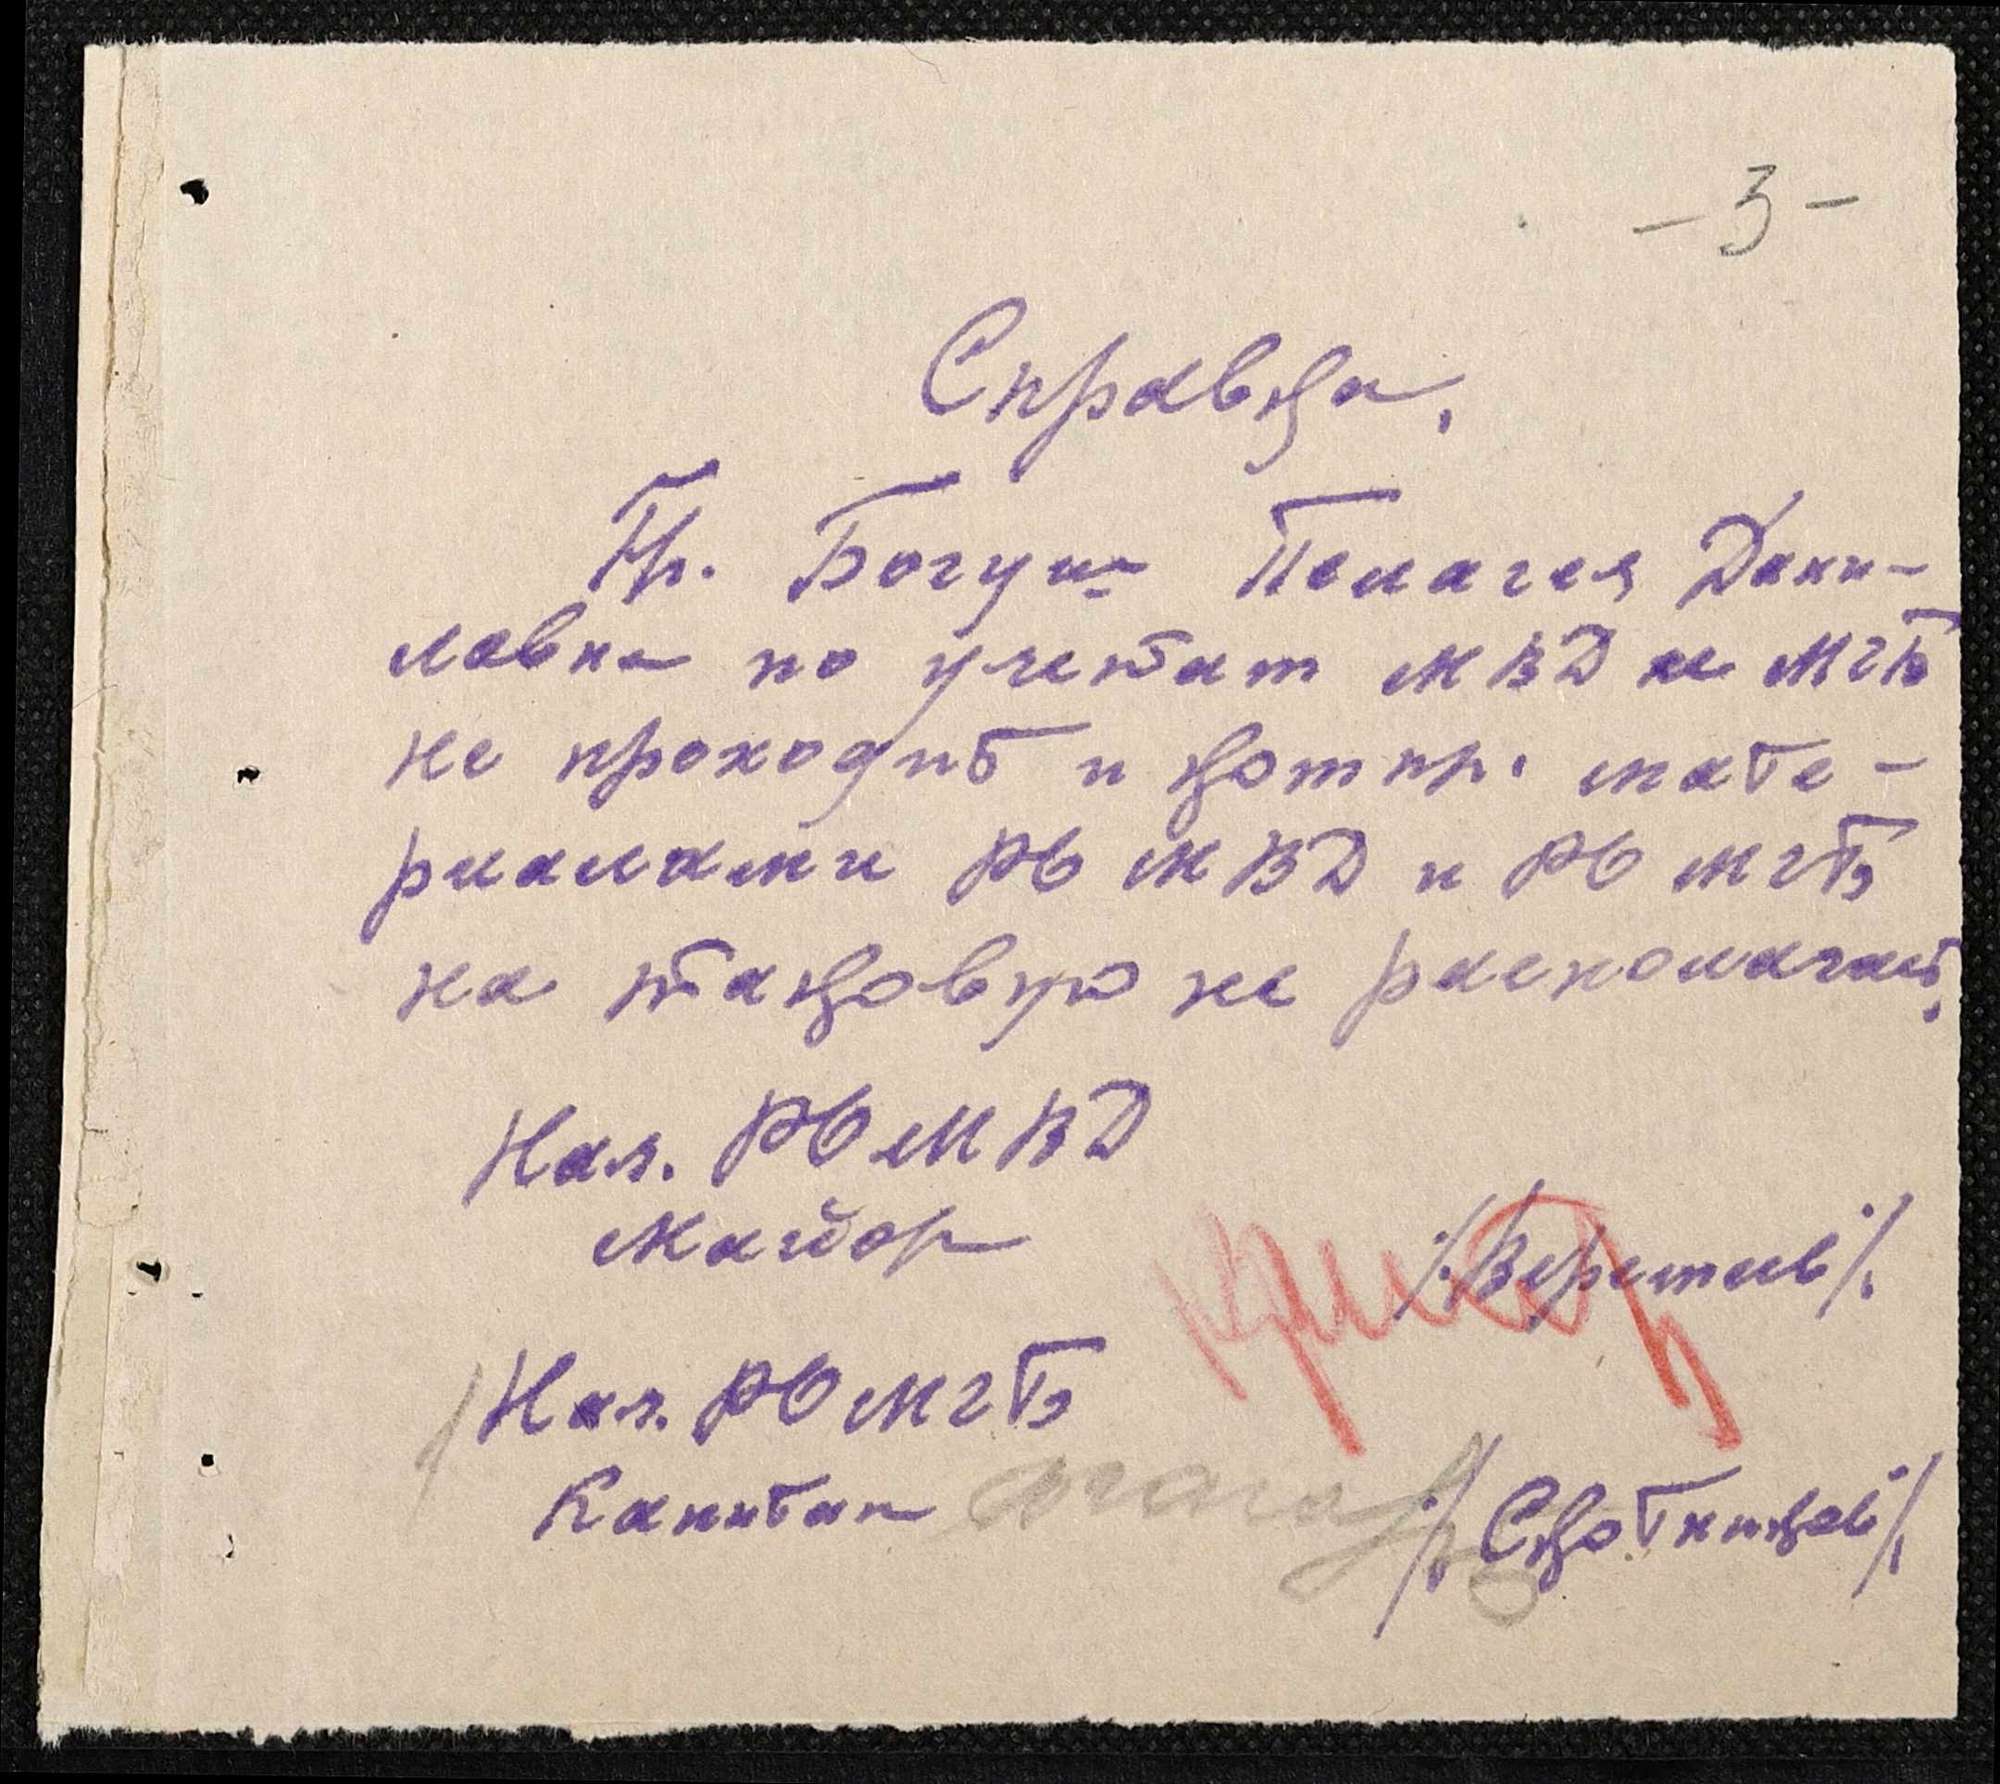 -3-
Справка.
Гр. Богуш Пелагея Дани-
ловна по учетам МВД и МГБ
не проходит и компр. мате-
риалами РО МВД и РО МГБ
на таковую не располагает.
Нач. РО МВД
Майор /Веремеев/.
Нач. РО МГБ
Капитан /Скотников/.